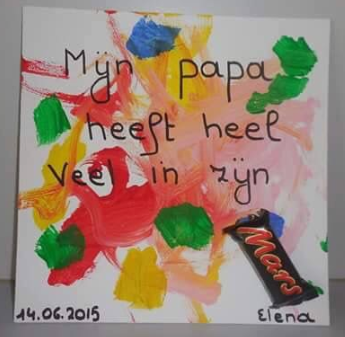 Mijn papa
heeft heel
veel in zijn
Mars
14.06.2015
Elena